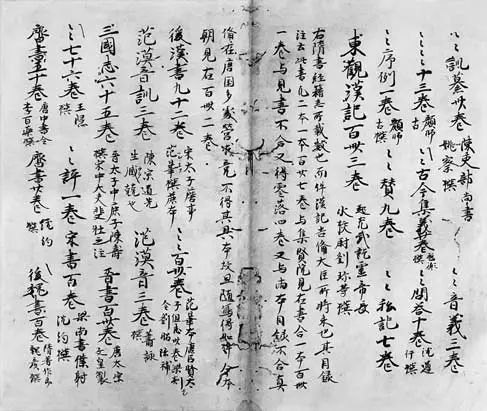 〻〻訓纂卅卷 陳吏部尚書姚察撰 〻〻音義三卷
〻〻〻〻十三卷 顔師古 〻〻古今集義廿卷 撰 〻〻問荅十卷 沈遵行撰
〻〻序例一卷 顔師古撰 〻〻賛九卷 〻〻私記七卷
東觀漢記百卌三卷 起光武訖靈帝長水校尉劉珍等撰
右隋書經籍志所載數也而件漢記吉備大臣所將来也其目録
注云此書凡二本一本百廿七卷与集賢院見在書合一本百卌
一卷与見書不合又得零落四卷又与兩本目録不合真
俻在唐国多處營求竟不得其具本故且随写得如件今本
朝見在百卌二卷
後漢書九十二卷 宋太子詹事范曄撰唐本 〻〻〻百卅卷 范曄本唐臣賢太子但志卅卷梁剡令劉昭注補
范漢音訓三卷 陳宗道先生臧競也 范漢音三卷 蕭該撰
三國志六十五卷 晉太子中庶子陳壽撰宋中大夫裴松之注 晉書百卅卷 唐太宗文皇製
〻〻七十六卷 王隠撰 〻〻評一卷 宋書百卷 梁尚書僕射沈約撰
齊書五十卷 唐中書令李百藥撰 齊書卅卷 沈約撰 後魏書百卷 隋著作郎魏彦撰